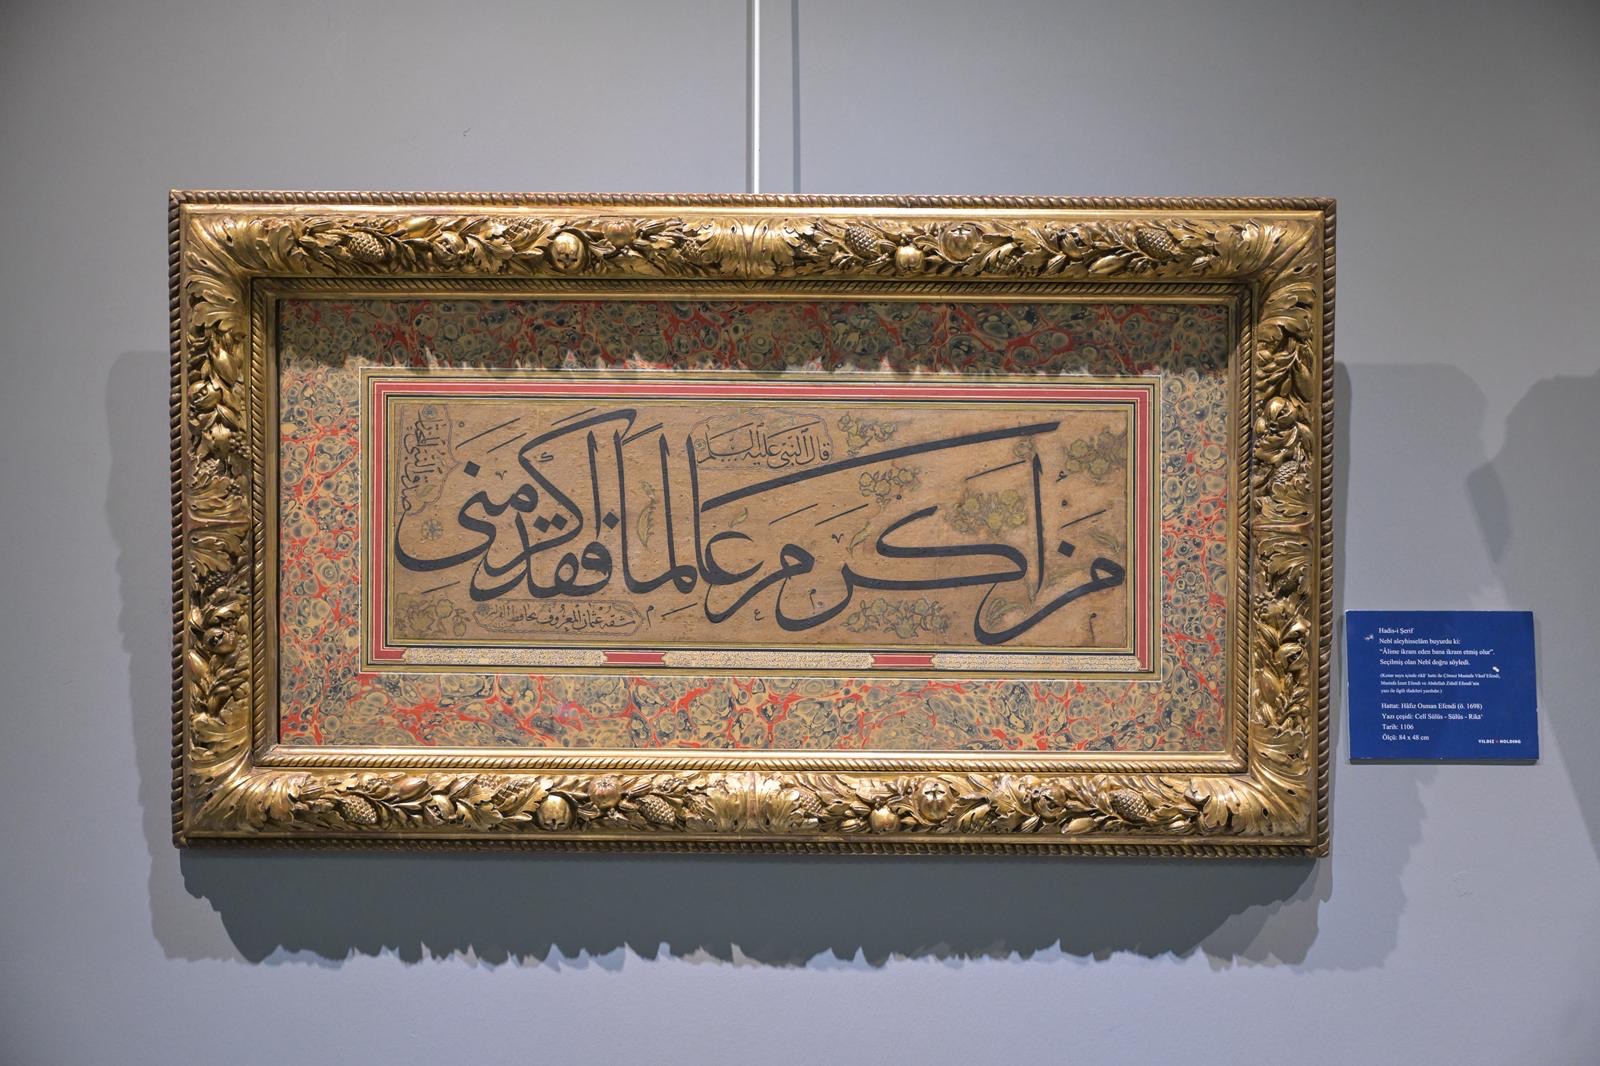 قال النبى عليه السلام
من أكرم عالما فقد أكرمنى
صدق النبى المجتبى
مشقه عثمان المعروف بحافظ القرآن
Hadis-i Şerif
Nebî aleyhisselâm buyurdu ki:
"Âlime ikram eden bana ikram etmiş olur".
Seçilmiş olan Nebî doğru söyledi.
(Kenar suyu içinde rikā' hattı ile Çömez Mustafa Vâsıf Efendi,
Mustafa İzzet Efendi ve Abdullah Zühdî Efendi'nin
yazı ile ilgili ifadeleri yazılıdır.)
Hattat: Hâfız Osman Efendi (ö. 1698)
Yazı çeşidi: Celî Sülüs - Sülüs - Rikā'
Tarih: 1106
Ölçü: 84 x 48 cm
YILDIZ HOLDING